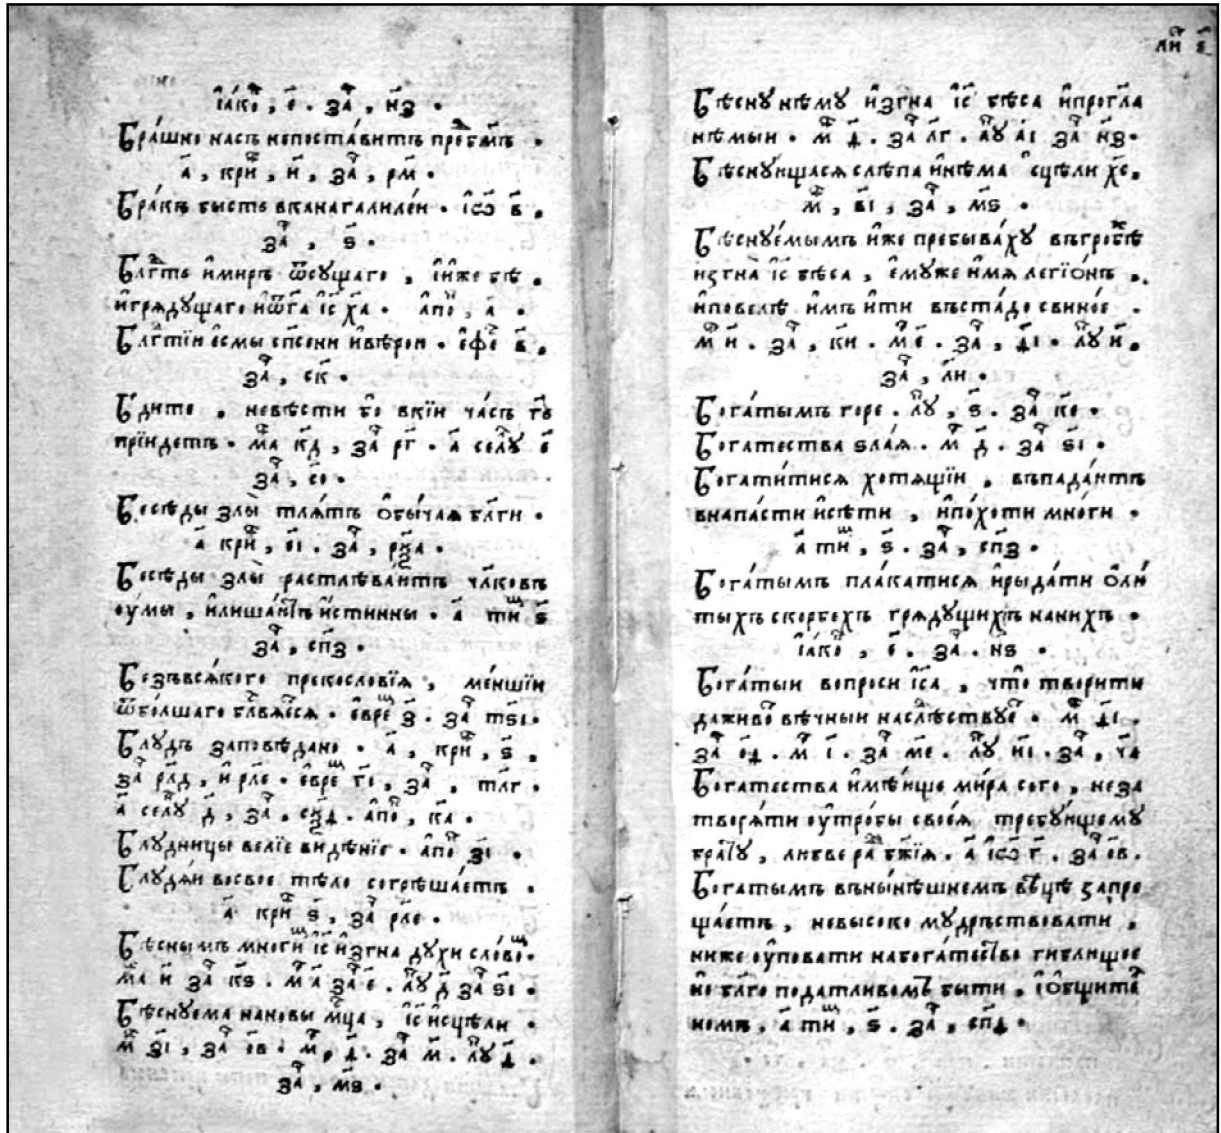 і҆а́ко҃, є҃. за҃, н҃з.
Бра́шно насъ непоста́витъ пре́дбг҃мъ.
а҃, кри҃, и҃, за҃, рм҃.
Бра́къ бысть вканагалиле́и. і҆ѡ҃ в҃.
за҃, ѕ҃.
Блг҃ть и҆миръ ѿсущаго, и҆и҆же бѣ.
и҆грядущаго и҆ѿга і҆с҃ х҃а. а҆по҃, а҃.
Блг҃тїи є҆смы сп҃сени и҆вѣрои. є҆фе҃ в҃.
за҃, ск҃.
Бдите, невѣсти бо вкїи ча́съ гь҃
прїидетъ. м҃а к҃д, за҃ рг҃. а҃ селꙋ҃ є҃
за҃, со҃.
Бесѣды злы̀ тля́тъ ѻ҆бы́чая бл҃ги.
а҃ кри҃, єі҃. за҃, рѯ҃а.
Бесѣды злы̀ растлѣва́ютъ чл҃ковъ
оу҆мы, и҆лиша́ютъ и҆стинны. а҃ тиⷳ҇ ѕ҃
за҃, сп҃з.
Безъвся́кого прекословїя, ме́ншїи
ѿбо́лшаго бл҃вяе҃ся. є҆вре҃ з҃. за҃ тѕ҃і.
Блꙋдъ заповѣдано. а҃, кри҃, ѕ҃,
за҃ рл҃д, и҆ рл҃е. є҆вре҃ гі҃, за҃, тл҃г.
а҃ селꙋ҃ д҃, за҃, сѯ҃д. а҆по҃, к҃а.
Блꙋдницы велїе видѣнїе. а҆по҃ зі҃.
Блꙋдя́и восвое тѣло согрѣша́етъ.
а҃ кри҃ ѕ҃, за҃ рл҃е.
Бѣснымъ многи҃ і҆с҃ и҆згна дꙋхи сло́во.
м҃а и҃ за҃ к҃ѕ. м҃а а҃ за҃ є҃. лꙋ҃ д҃ за҃ ѕі҃.
Бѣснꙋема нановы мц҃а, і҆с҃ и҆сцѣли.
м҃ зі҃, за҃ ов҃. м҃, д҃. за҃ м҃. лꙋ҃ д҃.
за҃, м҃ѕ.
ли҃ є҃
Бѣснꙋ нѣмꙋ и҆згна і҆с҃ бѣса и҆прогл҃а
нѣмыи. м҃ д҃. за҃ лг҃. лꙋ҃ аі҃ за҃ н҃з.
Бѣснꙋющася слѣпа и҆нѣма и҆сцѣли х҃с.
м҃, ві҃, за҃, м҃ѕ.
Бѣснꙋе́мымъ и҆же пребыва́хꙋ въгробѣ
и҆згна̀ і҆с҃ бѣса, є҆мꙋже и҆мя легїо́нъ,
и҆повелѣ и҆мъ и҆ти въста́до свино́е.
м҃ и҃. за҃, к҃и. м҃ є҃. за҃, ді҃. лꙋ҃ и҃.
за҃, л҃и.
Бога́тымъ горе. лꙋ҃, ѕ҃. за҃ к҃е.
Богатества ѕла́я. м҃ д҃. за҃ ѕі҃.
Богати́тися хотящїи, въпада́ютъ
внапа́сти и҆сѣти, и҆по́хоти многи.
а҃ тиⷳ҇, ѕ҃. за҃, сп҃з.
Бога́тымъ пла́катися и҆рыда́ти ѻ҆лю́
тыхъ скорбехъ грядꙋщихъ нанихъ.
і҆а́ко҃, є҃. за҃. н҃ѕ.
Бога́тыи вопроси і҆с҃а, что̀ творити
даживо҃ вѣчныи наслѣствꙋе҃. м҃ ді҃.
за҃ од҃. м҃ і҃. за҃ м҃е. лꙋ҃ иі҃. за҃, ч҃а
Богатества и҆мѣющю ми́ра сего, неза
творя́ти оу҆тро́бы своея̀ требꙋ́ющемꙋ
бра́тꙋ, любве ра҃ бж҃їя. а҃ і҆ѡ҃ г҃. за҃ ов҃.
Богатымъ вънын́ѣшнемъ вѣцѣ запре
ща́етъ, невысоко мꙋдръствовати,
ниже оу҆повати набога́тество гиблющее
но бл҃го податливомъ быти, и҆ѻ҆бщите҃
номъ, а҃ тиⷳ҇, ѕ҃. за҃, сп҃д.